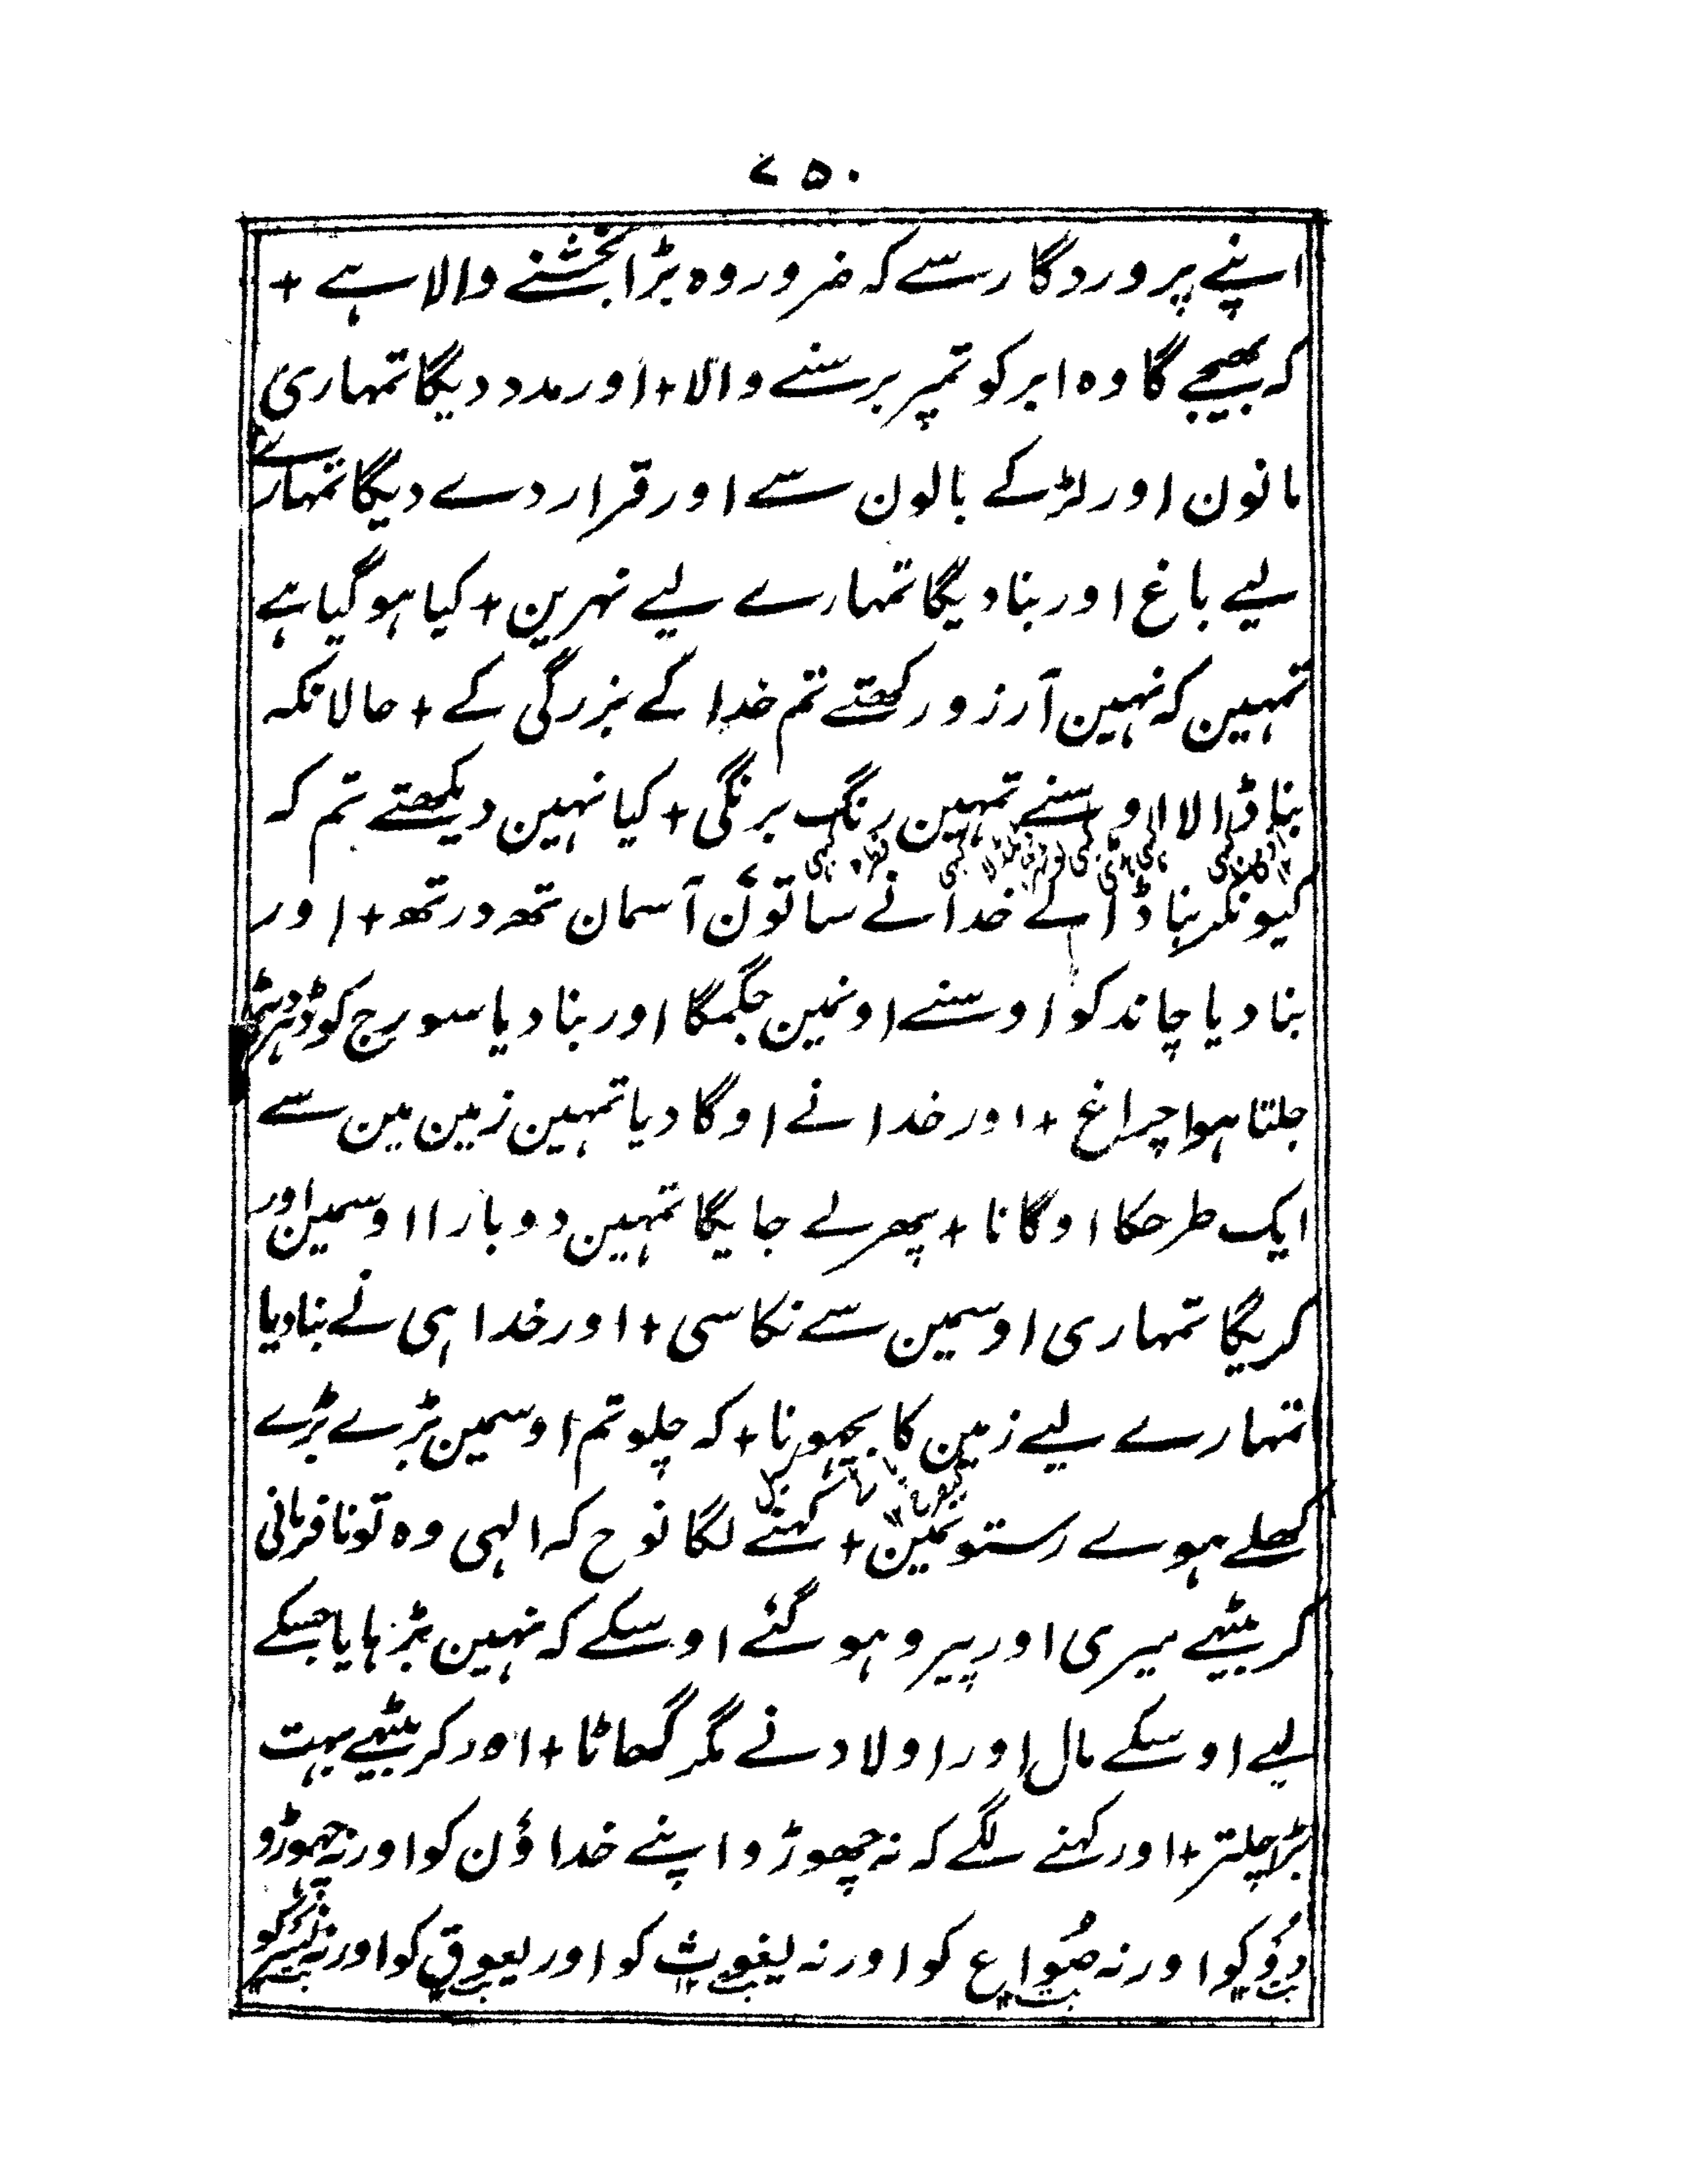 ۷۵۰
اپنے پروردگار سے کہ ضرور وہ بڑا بخشنے والا ہے +
کہ بھیجے گا وہ ابر کو تمپر برسنے والا + اور مدد دیگا تمہاری
مانون اور لڑکے بالون سے اور قرار دے دیگا تمہارے
لیے باغ اور بنا دیگا تمہارے لیے نہرین + کیا ہو گیا ہے
تمہین کہ نہین آرزو رکھتے تم خدا کے بزرگی کے + حالانکہ
بنا ڈالا اوسنے تمہین رنگ برنگی + کیا نہین دیکھتے تم کہ
کیونکر بنا ڈالے خدا نے ساتوَن آسمان تھ در تھ + اور
بنا دیا چاند کو اوسنے اونمین جگمگا اور بنا دیا سورج کو
جلتا ہوا چراغ + اور خدا نے اوگا دیا تمہین زمین مین سے
ایک طرحکا اوگانا + پھر لے جایگا تمہین دوبارا اوسمین اور
کریگا تمہاری اوسمین سے نکاسی + اور خدا ہی نے بنا دیا
تمہارے لیے زمین کا بچھونا + کہ چلو تم اوسمین بڑے بڑے
کھلے ہوے رستونمین + کہنے لگا نوح کہ الہی وہ تو نافرمانی
کر بیٹھے میری اور پیرو ہو گئے اوسکے کہ نہین بڑہایا جسکے
لیے اوسکے مال اور اولاد نے مگر گھاٹا + اور کر بیٹھے بہت
بڑا چلتر + اور کہنے لگے کہ نہ چھوڑو اپنے خداؤن کو اور نہ چھوڑو
وُدّ کو اور نہ صُواع کو اور نہ یغوث کو اور یعوق کو اور نہ نسر کو